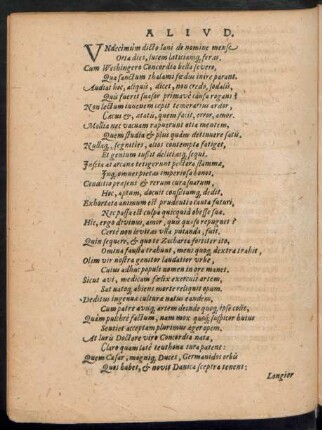 ALIVD.
VNdecimùm dicto Iani de nomine mense
Orta dies, lucem latitiamq́; feras,
Cum Wechingero Concordia bella seuero,
Qua sanctum thalami fœdus inire parant.
Audiat hæc, aliquis, dicet, non credo, sodalis,
Quis fuerit suasor primævè causa rogans?
Non lectum iuuenem cepit temerarius ardor,
Cæcus &, ætati, quem facit, error, amor.
Mollia nec vacuum rapuerunt otia mentem,
Quem studia & plus quàm detinuere satis,
Nullaq́; segnities, alios contempta fatiget,
Et genium iussit delitiasq́; sequi.
Iusta at arcana tetigerunt pectora flammæ,
Iugū omnes pietas imperiosa bonos.
Conditio præsens & rerum cura suarum,
Hoc, aptum, docuit consiliumq́; dedit,
Exhortata animum est prudentia cauta futuri,
Nec passa est culpa quicquid obesse sua.
Hic, ergo divinus, amor, quis quæso repugnet?
Certè non levitas vlla putanda, fuit.
Quin sequere, & quo te Zacharia fert iter ito,
Omina fausta trahunt, mens quoq́; dextra trahit,
Olim vir nostra genitor laudatier vrbe,
Cuius adhuc populi nomen in ore manet.
Sicut avi, medicam fœlix exercuit artem,
Sat natoq́; abiens morte reliquit opum.
Deditus ingenua cultura natus eandem,
Cum patre avuq́; artem deinde quoq́; ipse colit,
Quàm pulchrè factum, nam mox quoq́; suspicor huius
Sentiet acceptam plurimus æger opem.
At Iuris Doctore viro Concordia nata,
Claro quem latè teuthona iura patent:
Quem Cæsar, magniq́; Duces, Germanides orbis
Quos habet, & novit Danica sceptra tenens:
Longior